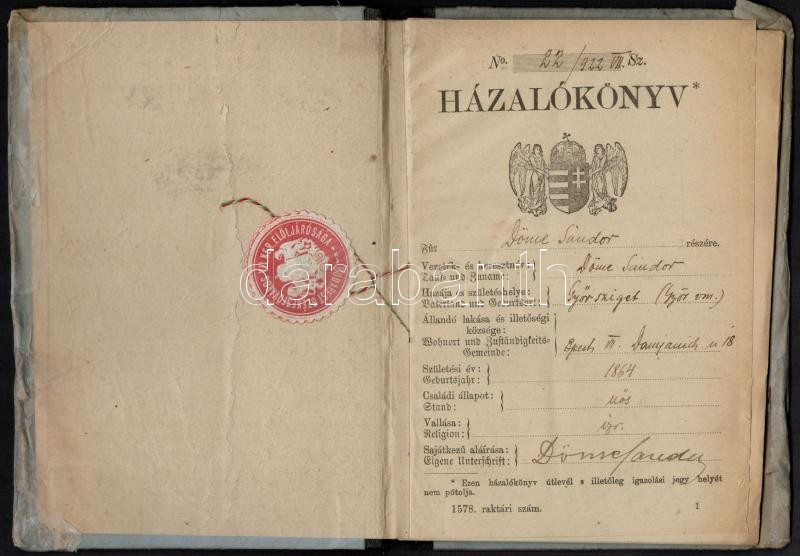 No. 22/922 VII. Sz.
HÁZALÓKÖNYV*
Für Döme Sándor részére.
Vezeték- és keresztnév: Döme Sándor
Tauf- und Zuname:
Hazája és születéshelye: Győrsziget (Győr vm.)
Vaterland und Geburtsort:
Állandó lakása és illetőségi
községe:
Wohnort und Zuständigkeits-
Gemeinde: Bpest VII. Damjanich u 18
Születési év: 1864
Geburtsjahr:
Családi állapot: nős
Stand:
Vallása: izr.
Religion:
Sajátkezű aláírása: Döme Sándor
Eigene Unterschrift:
* Ezen házalókönyv útlevél s illetőleg igazolási jegy helyét
nem pótolja.
1578. raktári szám. 1
KER. ELÖLJÁRÓSÁGA
darabanth.com